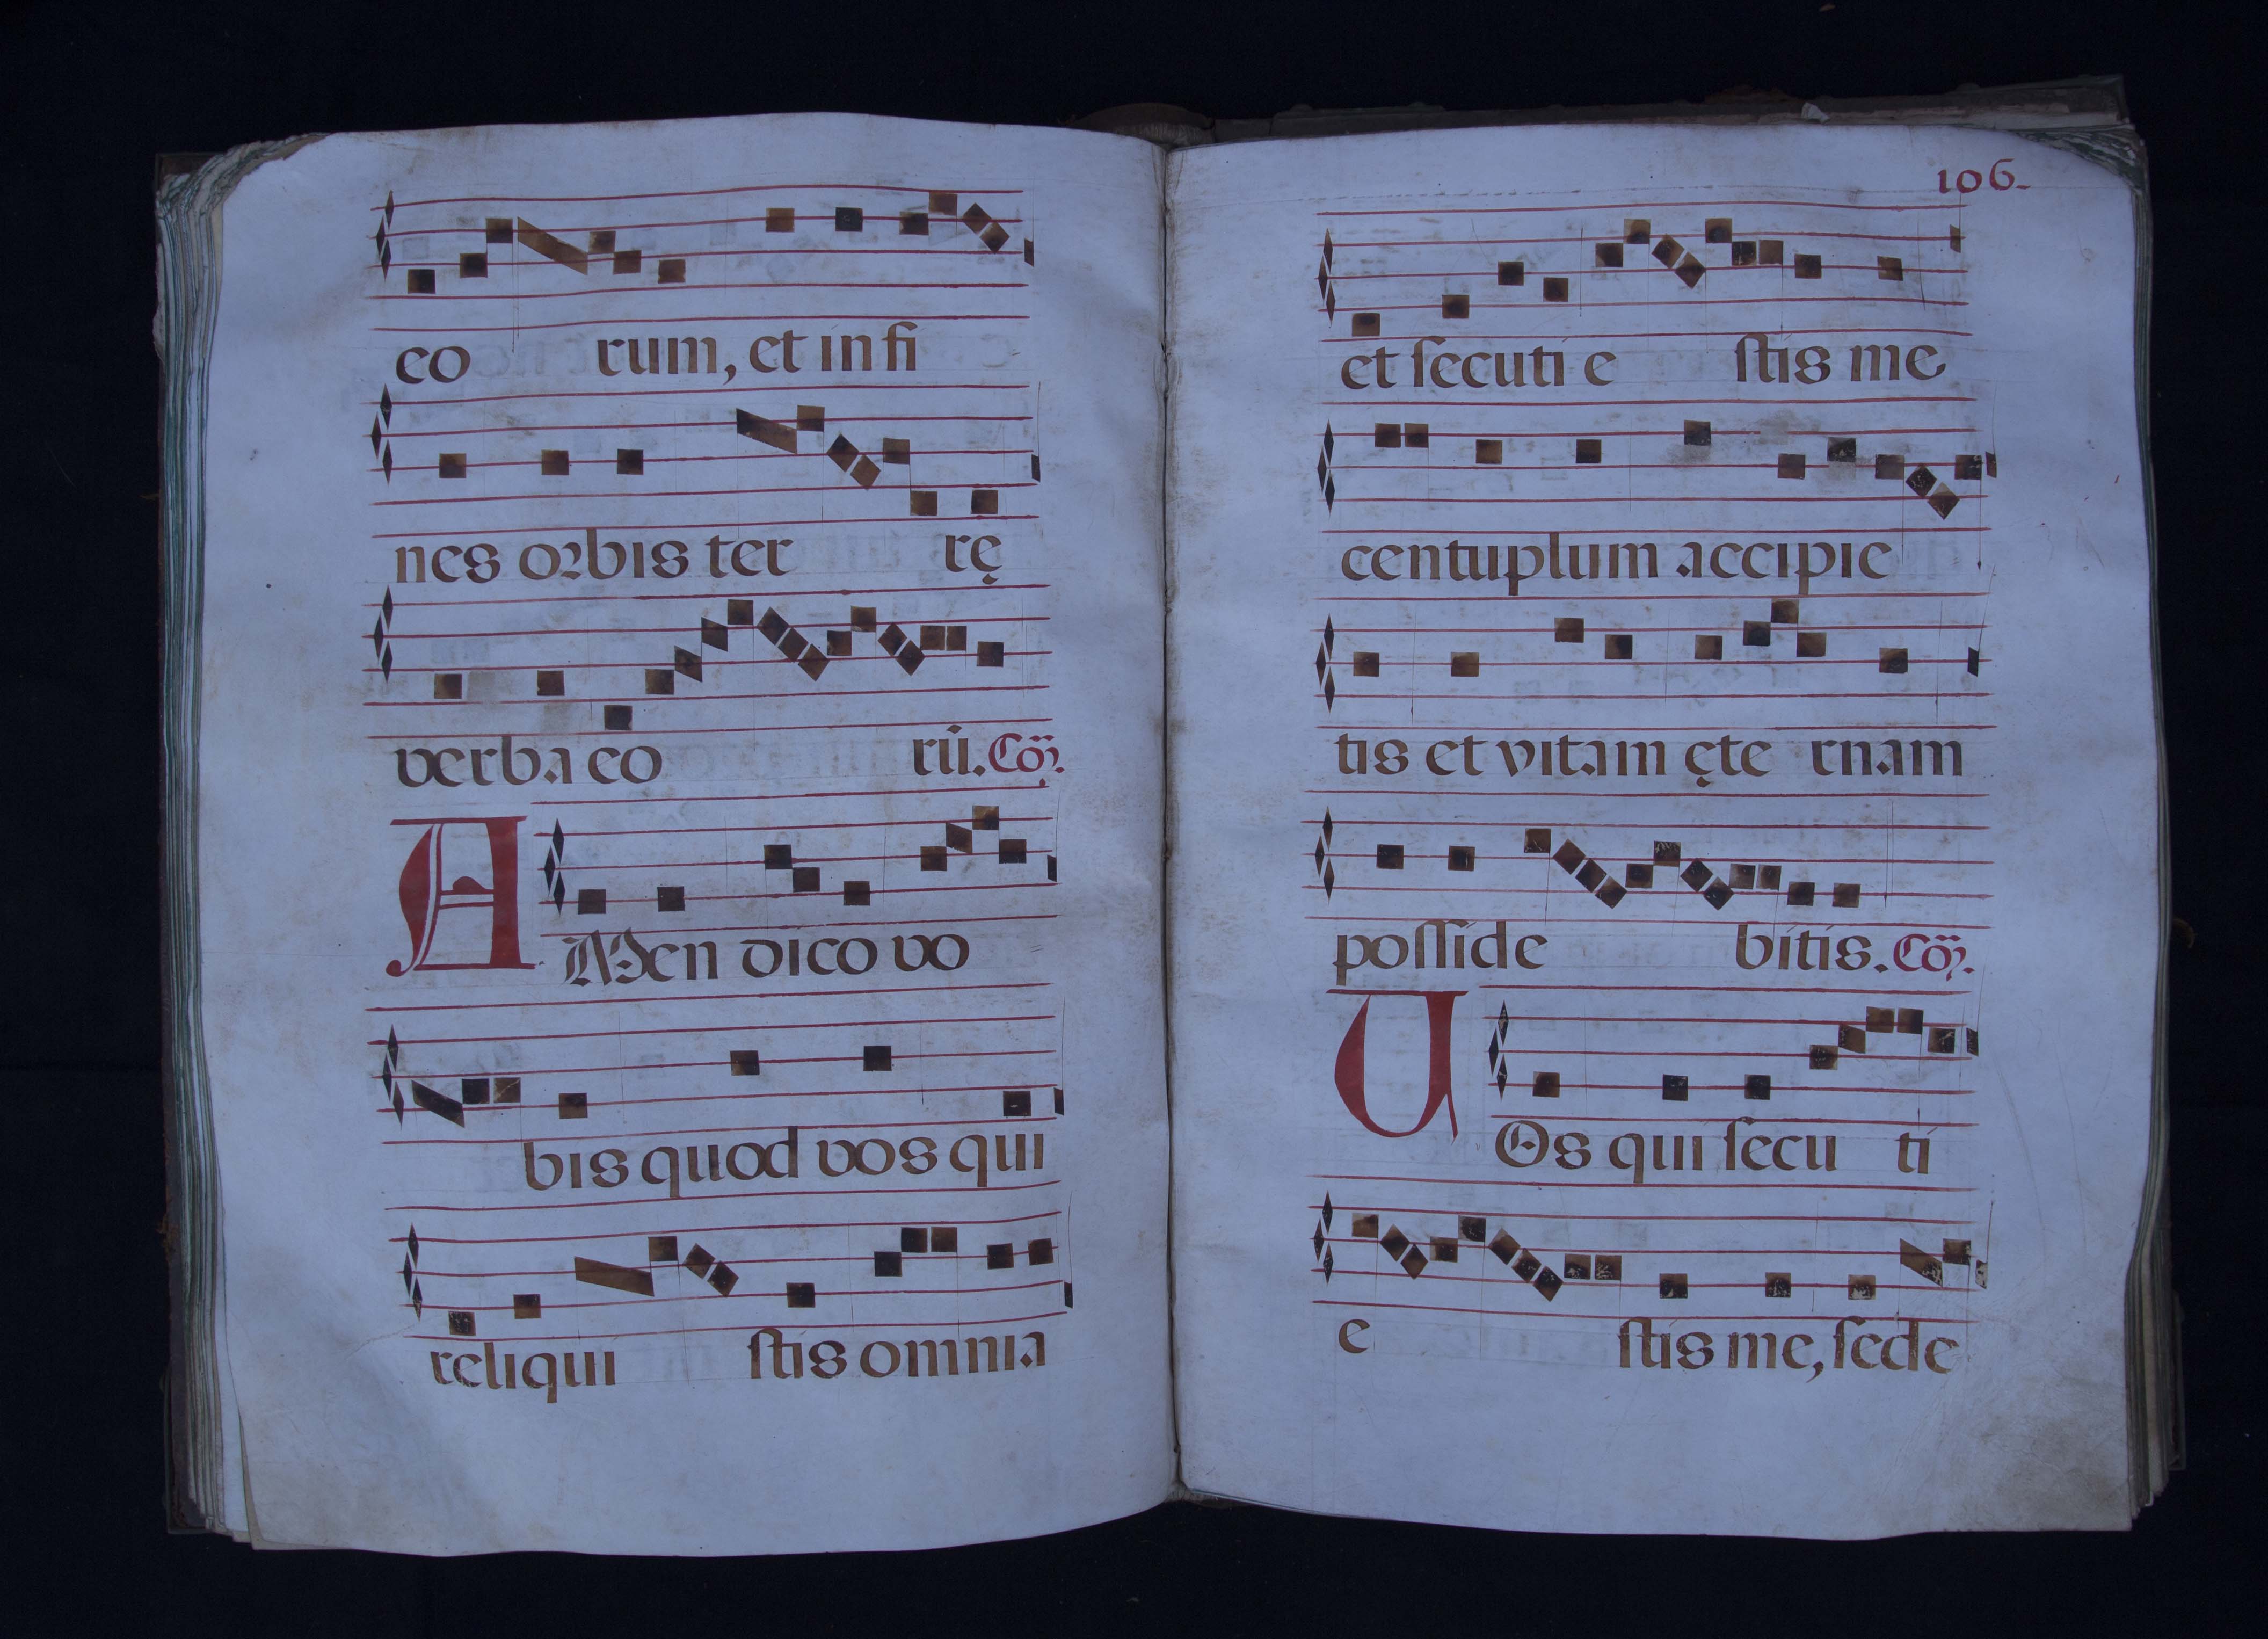 eo rum, et in fi
nes orbis ter rę
verba eo rũ. Cõ.
AMen dico vo
bis quod vos qui
reliqui ſtis omnia
106.
et ſecuti e ſtis me
centuplum accipie
tis et vitam ęte rnam
poſſide bitis. Cõ.
VOs qui ſecu ti
e ſtis me, ſede